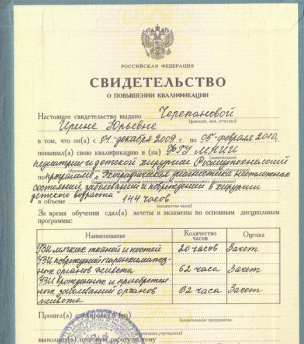 РОССИЙСКАЯ ФЕДЕРАЦИЯ
СВИДЕТЕЛЬСТВО
О ПОВЫШЕНИИ КВАЛИФИКАЦИИ
Настоящее свидетельство выдано Черепановой
(фамилия, имя, отчество)
Ирине Юрьевне
в том, что он(а) с 01 декабря 2009 г. по 08 февраля 2010,
повышал(а) свою квалификацию в (на) ФГУ МНИИ
педиатрии и детской хирургии Росмедтехнологий
диагностика неотложных
состояний, заболеваний и повреждений в хирургии
детского возраста"
в объеме 144 часов
(количество часов)
За время обучения сдал(а) зачеты и экзамены по основным дисциплинам
программы:
Наименование Количество часов Оценка
УЗИ мягких тканей и костей 20 часов Зачет
УЗИ повреждений паренхиматоз-
ных органов живота 62 часа Зачет
УЗИ врожденных и приобретен-
ных заболеваний органов
живота 62 часа Зачет
Прошел(а)
выполнил(а) итоговую работу на тему